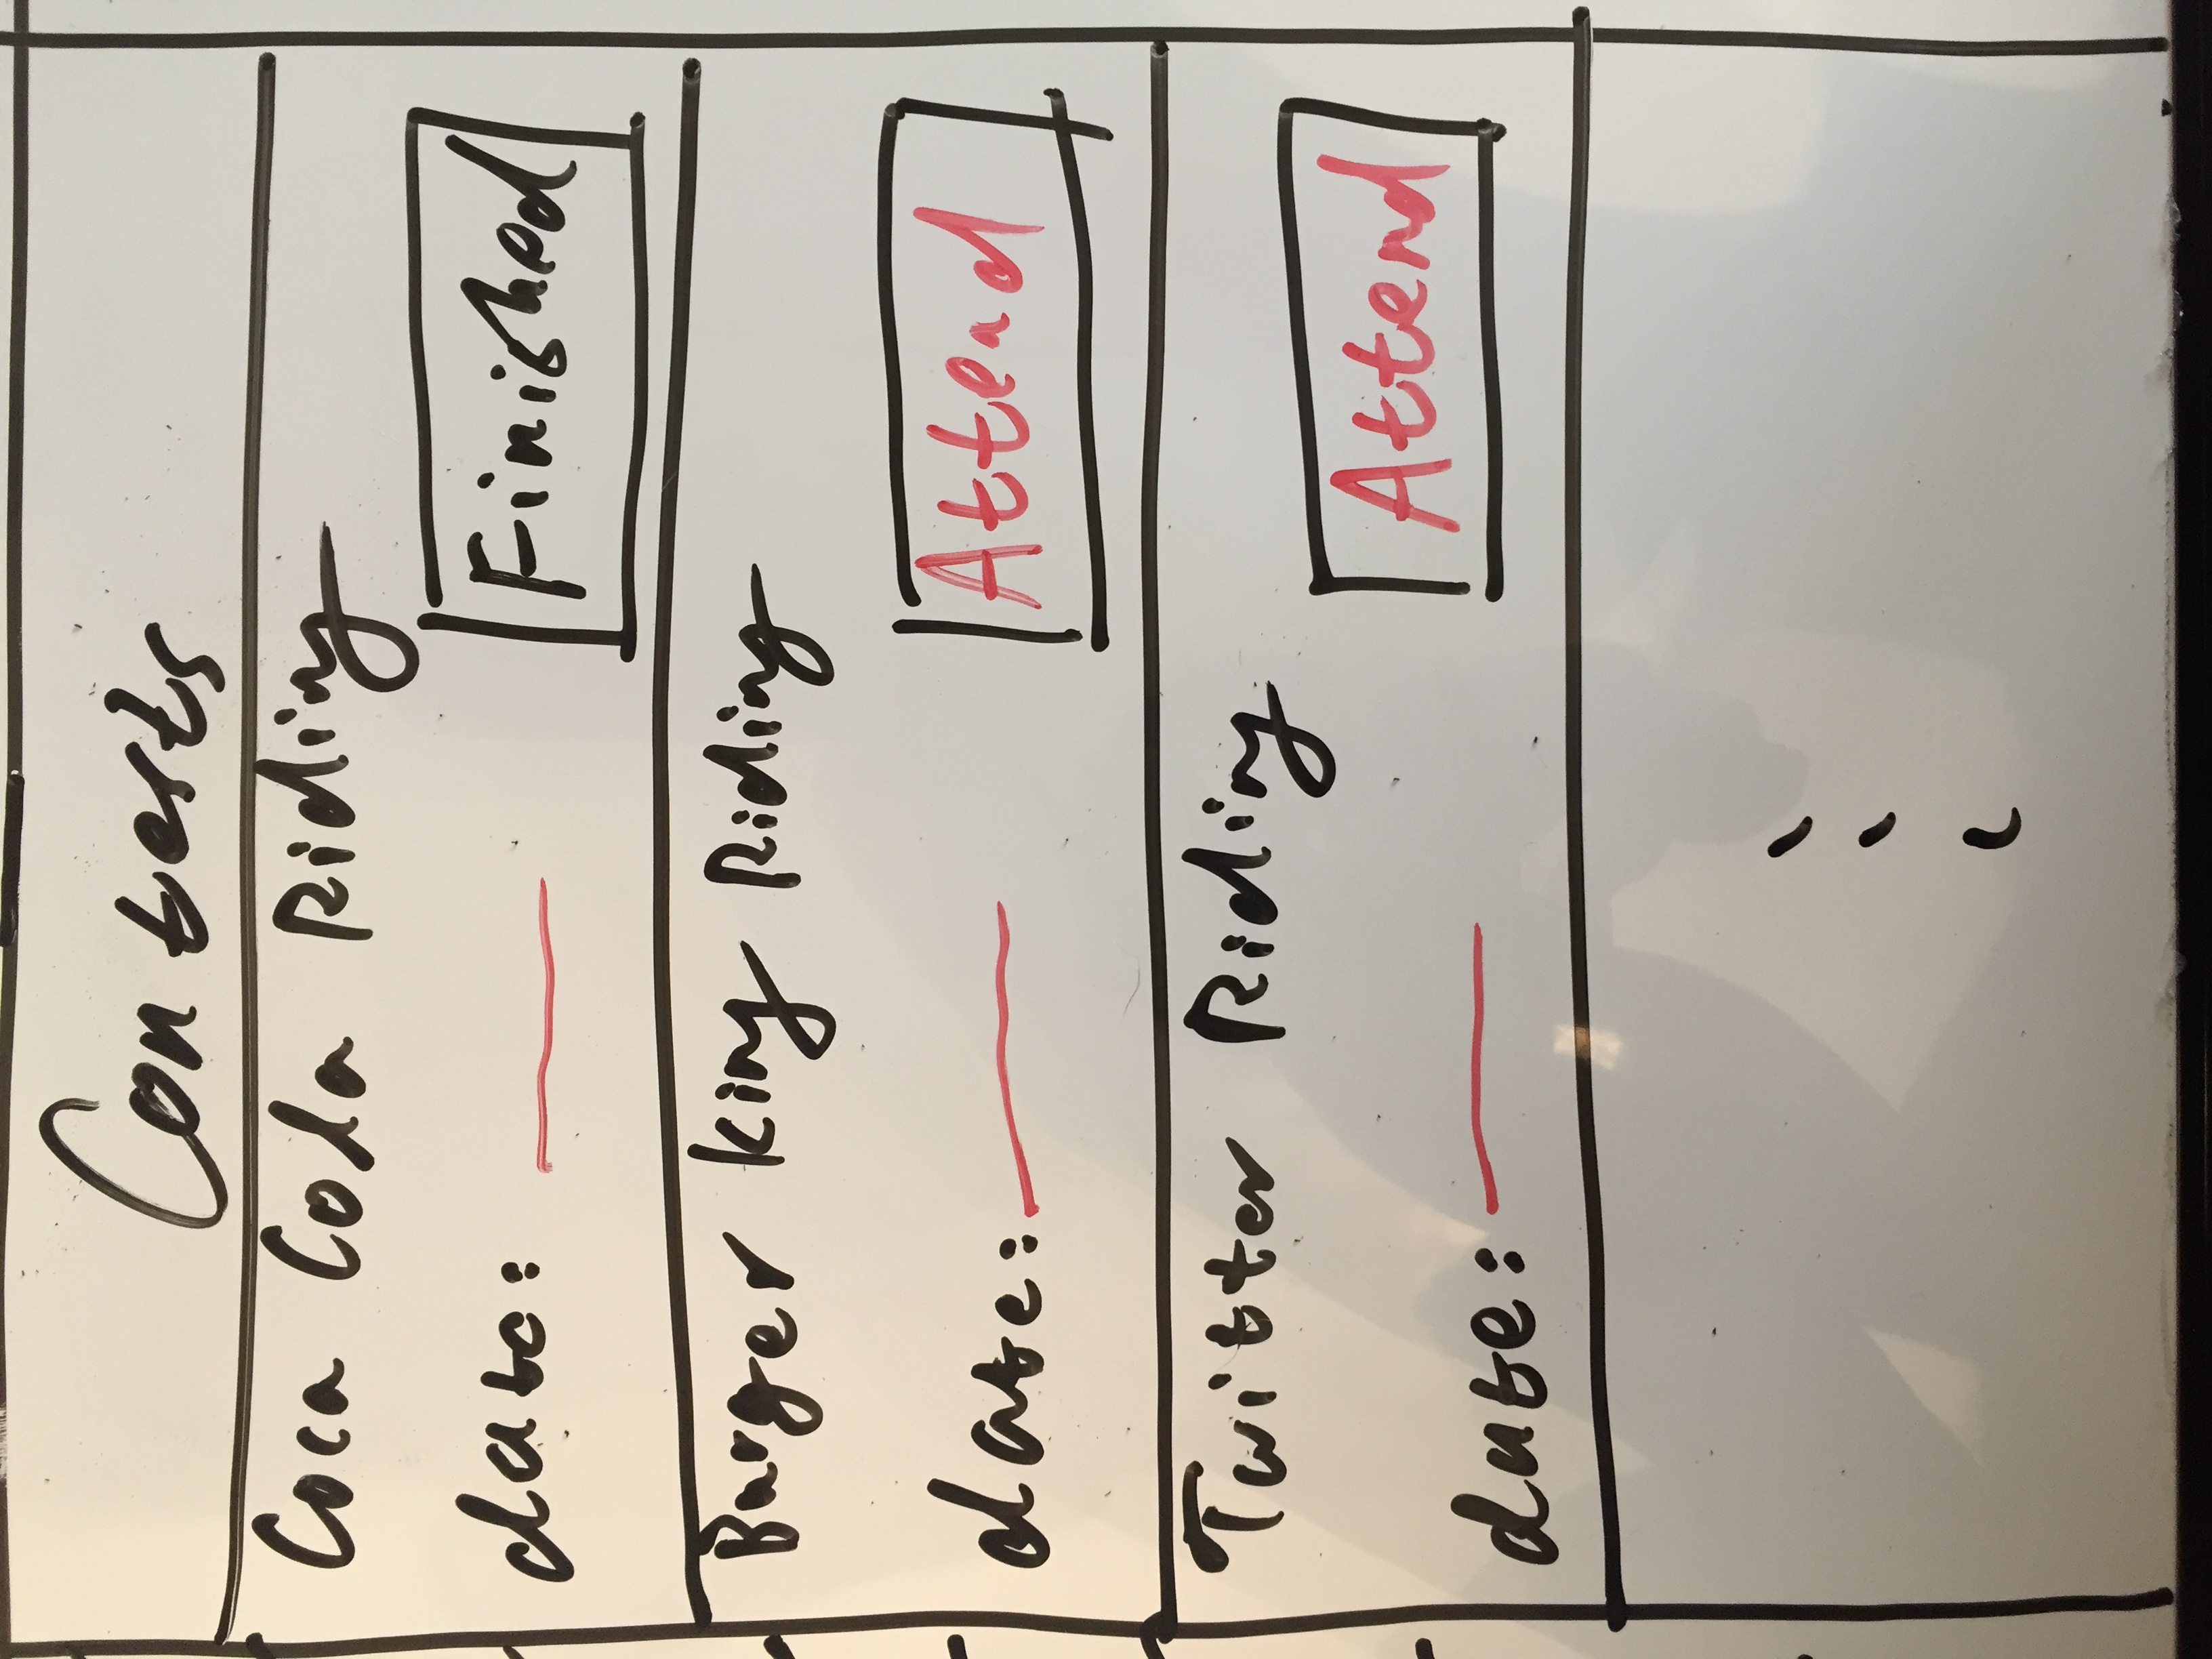 Contests
Coca Cola Riding
date:
Finished
Burger King Riding
date:
Attend
Twitter Riding
Attend
date: